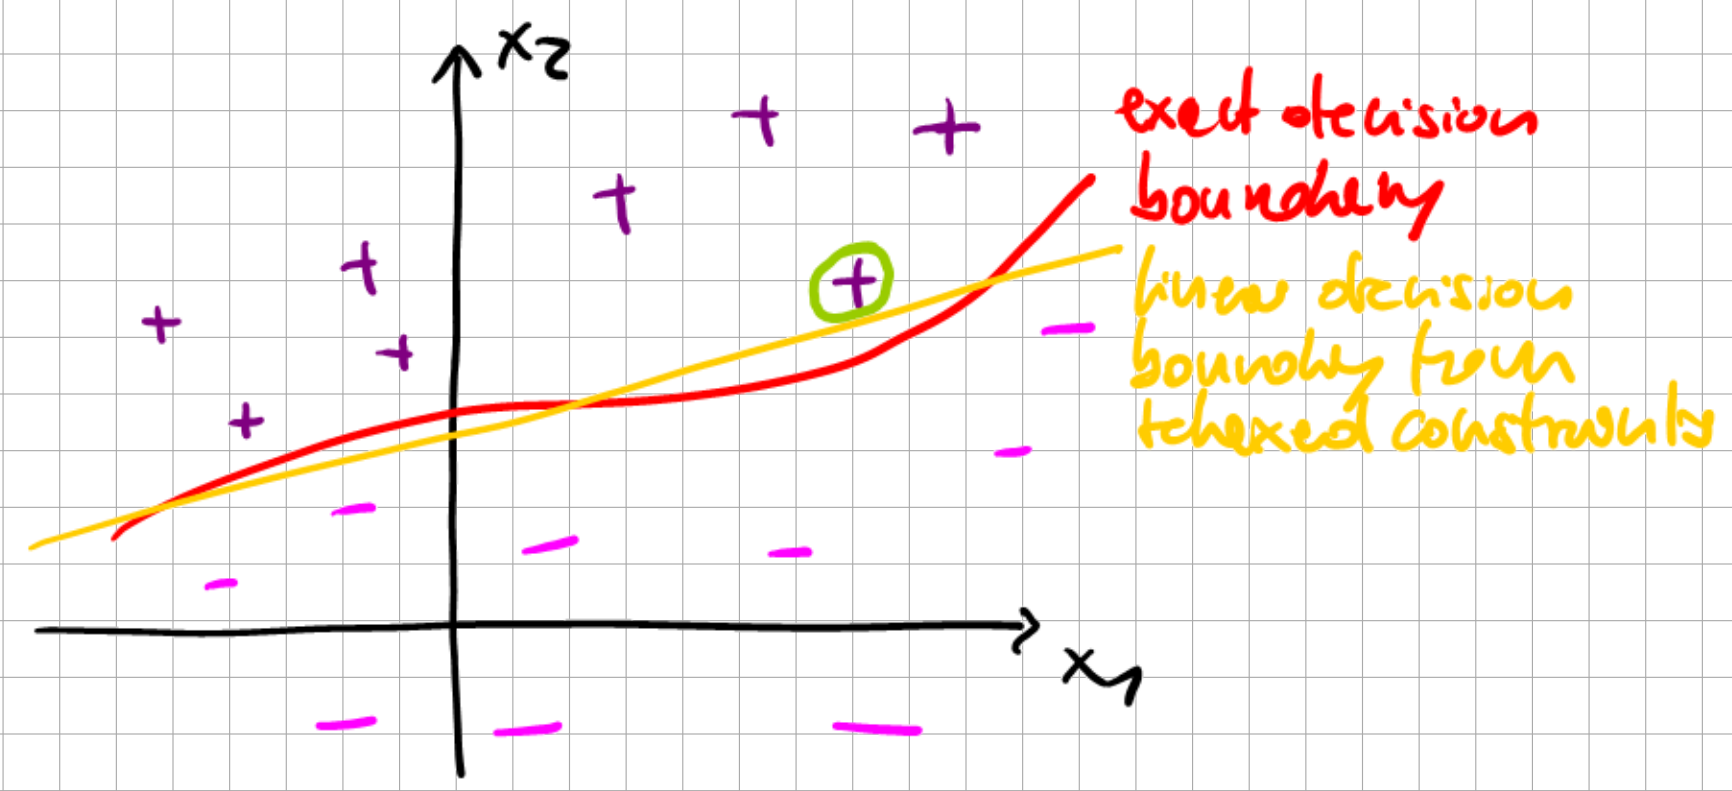 x2
exact decision
boundary
linear decision
boundary from
relaxed constraints
x1